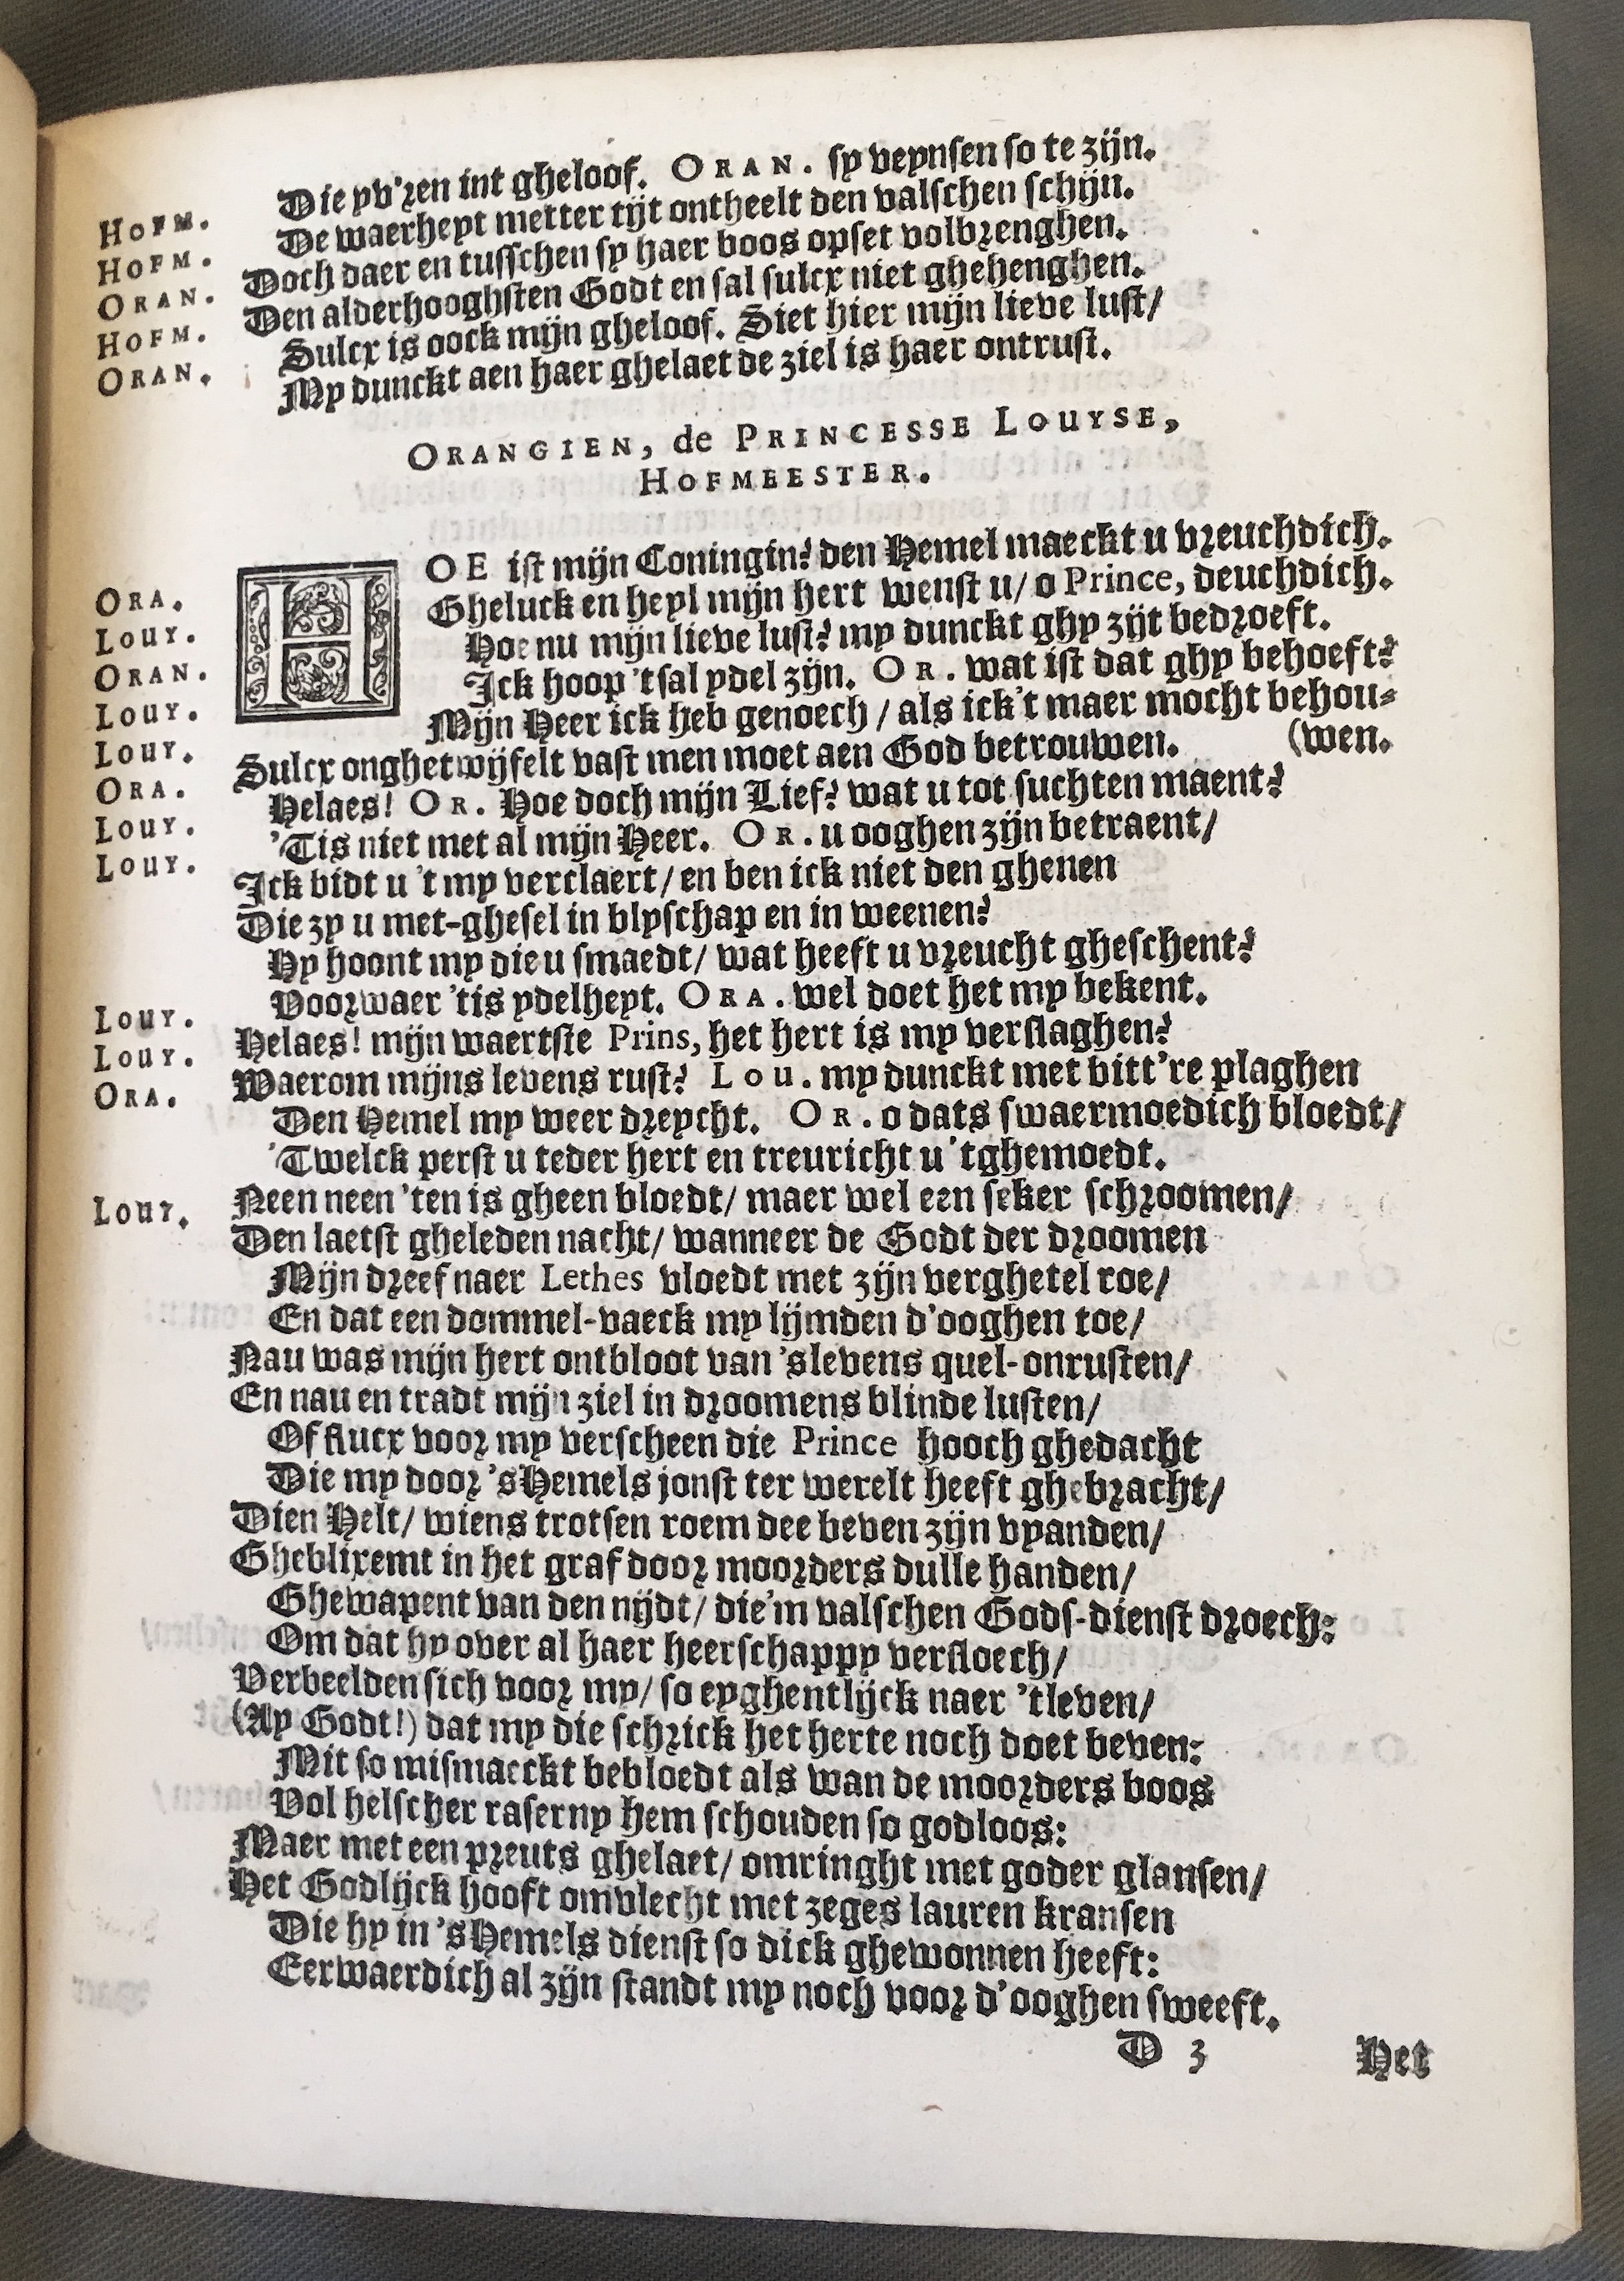 HOFM. Die yv'ren int gheloof. ORAN. sy veynsen so te zijn.
HOFM. De waerheyt metter tijt ontheelt den valschen schijn.
ORAN. Doch daer en tusschen sy haer boos opset volbrenghen.
HOFM. Den alderhooghsten Godt en sal sulcx niet ghehenghen.
ORAN. Sulcx is oock mijn gheloof. Siet hier mijn lieve lust/
My dunckt aen haer ghelaet de ziel is haer ontrust.
ORANGIEN, de PRINCESSE LOUYSE,
HOFMEESTER.
ORA. HOE ist mijn Coningin? den Hemel maeckt u vreuchdich.
LOUY. Gheluck en heyl mijn hert wenst u/ o Prince, deuchdich.
ORAN. Hoe nu mijn lieve lust? my dunckt ghy zijt bedroeft.
LOUY. Ick hoop 'tsal ydel zijn. OR. wat ist dat ghy behoeft?
LOUY. Mijn Heer ick heb genoech / als ick't maer mocht behou-
ORA. Sulcx onghetwijfelt vast men moet aen God betrouwen. (wen.
LOUY. Helaes! OR. Hoe doch mijn Lief? wat u tot suchten maent?
LOUY. 'Tis niet met al mijn Heer. OR. u ooghen zijn betraent/
Ick bidt u 't my verclaert/ en ben ick niet den ghenen
Die zy u met-ghesel in blyschap en in weenen?
Hy hoont my die u smaedt/ wat heeft u vreucht gheschent?
LOUY. Voorwaer 'tis ydelheyt. ORA. wel doet het my bekent.
LOUY. Helaes! mijn waertste Prins, het hert is my verslaghen?
ORA. Waerom mijns levens rust? LOU. my dunckt met bitt're plaghen
Den Hemel my weer dreycht. OR. o dats swaermoedich bloedt/
'Twelck perst u teder hert en treuricht u 'tghemoedt.
LOUY. Neen neen 'ten is gheen bloedt/ maer wel een seker schroomen/
Den laetst gheleden nacht/ wanneer de Godt der droomen
Mijn dreef naer Lethes vloedt met zijn verghetel roe/
En dat een dommel-vaeck my lijmden d'ooghen toe/
Nau was mijn hert ontbloot van 'slevens quel-onrusten/
En nau en tradt mijn ziel in droomens blinde lusten/
Of flucx voor my verscheen die Prince hooch ghedacht
Die my door 'sHemels jonst ter werelt heeft ghebracht/
Dien Helt/ wiens trotsen roem dee beven zijn vyanden/
Gheblixemt in het graf door moorders dulle handen/
Ghewapent van den nijdt/ die'm valschen Gods-dienst droech:
Om dat hy over al haer heerschappy versloech/
Verbeelden sich voor my/ so eyghentlijck naer 'tleven/
(Ay Godt!) dat my die schrick het herte noch doet beven:
Mit so mismaeckt bebloedt als wan de moorders boos
Vol helscher raserny hem schouden so godloos:
Maer met een preuts ghelaet/ omringht met goder glansen/
Het Godlijck hooft omvlecht met zeges lauren kransen
Die hy in 'sHemels dienst so dick ghewonnen heeft:
Eerwaerdich al zijn standt my noch voor d'ooghen sweeft.
D 3 Het